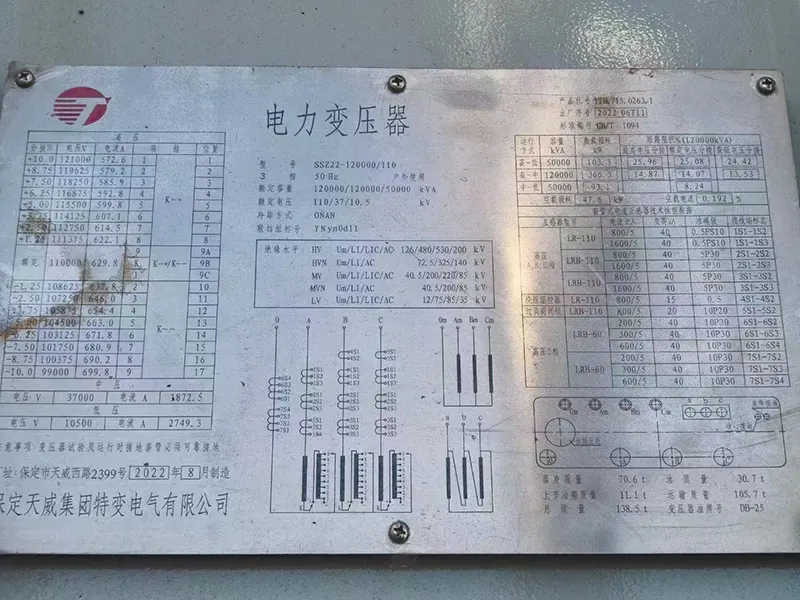 电力变压器
产品代号 1TB.715.0263.1
出厂序号 2022 06T11
标准编号 GB/T 1094
高压
分接% 电压V 电流A 联结 位置
+10.0 121000 572.6 1 1
+8.75 119625 579.2 2 2
+7.50 118250 585.9 3 3
+6.25 116875 592.8 4 4
+5.00 115500 599.8 5 K-+ 5
+3.75 114125 607.1 6 6
+2.50 112750 614.5 7 7
+1.25 111375 622.1 8 8
9 9A
额定 110000 629.8 K-+/K-- 9B
9C
-1.25 108625 637.8 2 10
-2.50 107250 646.0 3 11
-3.75 105875 654.4 4 12
-5.00 104500 663.0 5 K-- 13
-6.25 103125 671.8 6 14
-7.50 101750 680.9 7 15
-8.75 100375 690.2 8 16
-10.0 99000 699.8 9 17
中压
电压 V 37000 电流 A 1872.5
低压
电压 V 10500 电流 A 2749.3
注意事项:变压器试验及运行时接地套管必须可靠接地
址:保定市天威西路2399号 2022 年 8 月制造
保定天威集团特变电气有限公司
型号 SSZ22-120000/110
3 相 50 Hz 户外使用
额定容量 120000/120000/50000 kVA
额定电压 110/37/10.5 kV
冷却方式 ONAN
联结组标号 YNyn0d11
绝缘水平: HV Um/LI/LIC/AC 126/480/530/200 kV
HVN Um/LI/AC 72.5/325/140 kV
MV Um/LI/LIC/AC 40.5/200/220/85 kV
MVN Um/LI/AC 40.5/200/85 kV
LV Um/LI/LIC/AC 12/75/85/35 kV
O A B C
Om Am Bm Cm
a b c
运行方式 容量 kVA 负载损耗 kW 短路阻抗%(120000kVA)
最高电压分接 额定电压分接 最低电压分接
高-低 50000 103.3 25.96 25.08 24.42
高-中 120000 365.3 14.87 14.07 13.53
中-低 50000 93.1 8.24
空载损耗 47.6 kW 空载电流 0.192 %
套管式电流互感器技术性能数据
互感器型号 电流比A 负荷VA 准确级 接线端标志
高压 A,B,C相 LR-110 800/5 40 0.5FS10 1S1-1S2
1600/5 40 0.5FS10 1S1-1S3
LRB-110 800/5 40 5P30 2S1-2S2
1600/5 40 5P30 2S1-2S3
LRB-110 800/5 40 5P30 3S1-3S2
1600/5 40 5P30 3S1-3S3
绕组温控器 LR-110 800/5 15 0.5 4S1-4S2
过负荷闭锁 LRB-110 800/5 20 10P20 5S1-5S2
高压O相 LRB-60 200/5 40 10P30 6S1-6S2
300/5 40 10P30 6S1-6S3
600/5 40 10P30 6S1-6S4
LRB-60 200/5 40 10P30 7S1-7S2
300/5 40 10P30 7S1-7S3
600/5 40 10P30 7S1-7S4
Om Am Bm Cm a b c
O A B C
器身质量 70.6 t 油质量 30.7 t
上节油箱质量 11.1 t 运输质量 105.7 t
总质量 138.5 t 变压器油牌号 DB-25